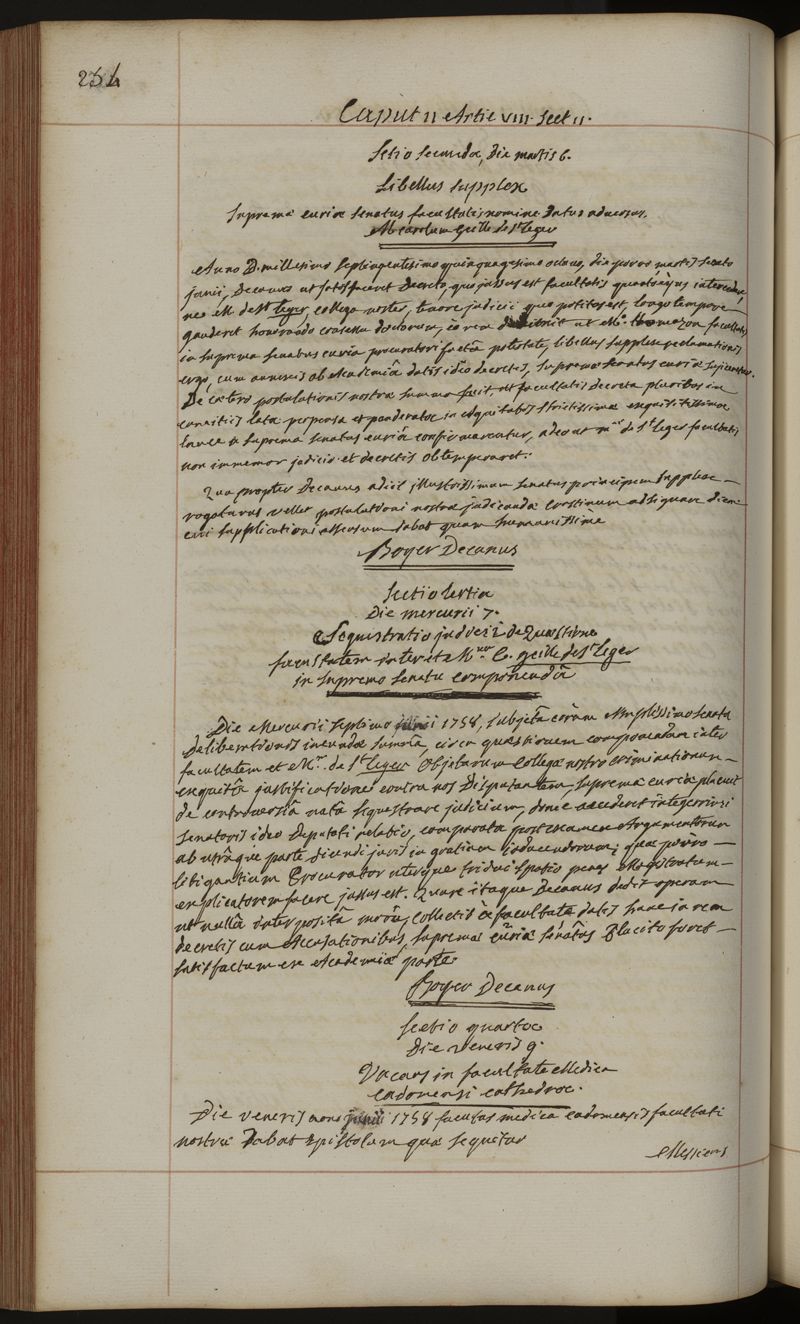 234
Caput 11 Artic VIII. Sect 11.
Sctio Secunda, Die martis 6.
Libellus supplex
Supremæ curiæ Senatus facultatis nomine Datus adversus
M. Carolum Guille de St Leger
Anno D. millesimo Septingentesimo quinquagesimo octavo, die vero martis sexto
junii, Decanus ut satisfaceret Decreto, quo jussus est facultatis
nec M. de St Leger, collega noster, tenore judicii quo potitus est, longo tempore
gauderet honorando consensu doctorum, in rem ut Mo. facultatis
in suprema senatus curia procuratori facta potestate, libellus supplex reclamationis
ergo, cum annexis ab Academiâ datis ideo decretis, supremæ Senatus curiæ
De cætero postulationis nostræ summa fuit, ut facultatis decreta pluribus in
comitiis lata perpensa et ponderata in æquitatis strictissimæ exquisitissima
lance a suprema senatus curiâ confirmarentur, adeo ut mus de St Leger facultatis
non immemor judicio et decretis obtemperaret.
Quapropter Decanus adiit illustrissimum senatus principem supplex
rogaturus vellet postulationi nostræ judicandæ crastinum adsignare diem
cui supplicationi assensum dabat quam humanissime
Boyer Decanus
Sectio tertia
Die mercurii 7.
Sequestratio judicii de Quæstione
facultatem inter et Mum C. Guille de St Leger
in supremo senatu componendâ
Die Mercurii septimo junii 1758, subjectâ coram Amplissimo Senatu
Deliberationis ineundæ summâ, circa quæstionem componendam inter
facultatem et Mr. de St Leger objectarum collegæ nostro criminationum
exquisitâ justificatione contra nos Disputantem, supremæ curiæ placuit
de controversiâ natâ sequestrare judicium, donec accederet integerrimi
Senatoris ideo Deputati relatio, comparata post examen Argumentorum
ab utrâque parte dicendi juris in gratiam inducendorum; quæ porro
litigantium Procurator uterque tridui spatio penes Magistratum
explicatorem facere jussus est. Quare itaque Decanus dedit operam
ut nullâ interpositâ morâ, collectis à facultate datis hanc in rem
decretis cum Accusationibus, supremæ curiæ senatus Placito foret
satisfactum ex Academiæ parte.
Boyer Decanus
Sectio quarta
Die veneris 9.
Vacans in facultate Medica
cadomensi cathedra.
Die veneris nono junii 1758 facultas medica cadomensis facultati
nostræ Dabat Epistolam quæ sequitur
Messieurs